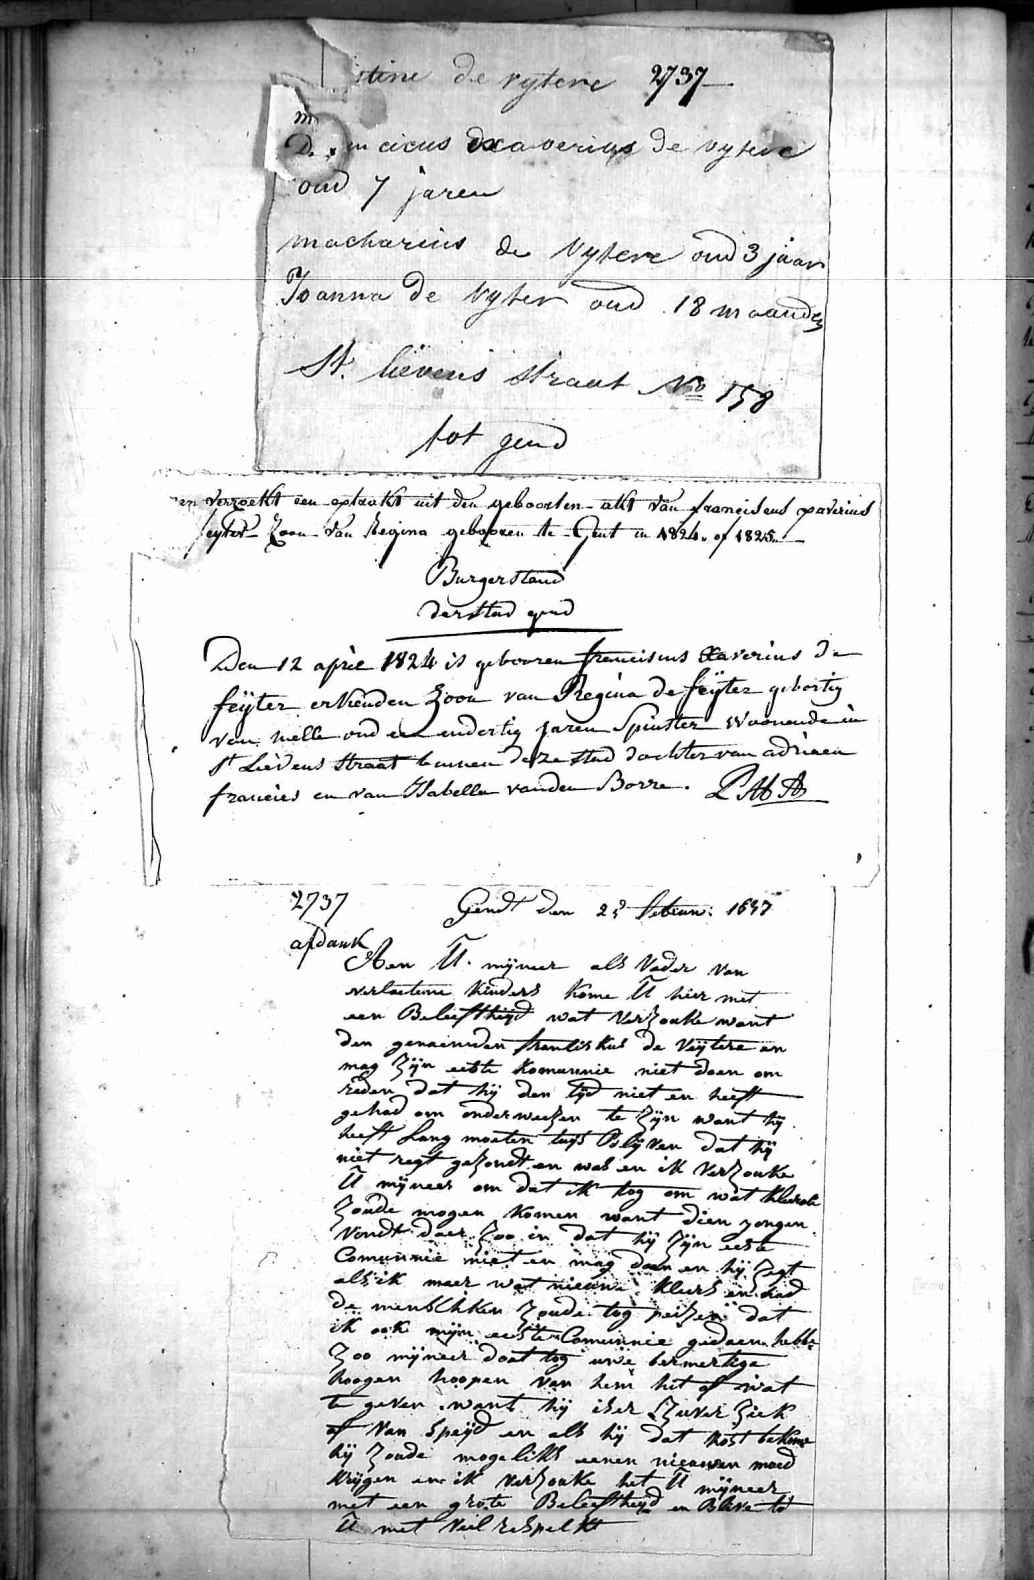 stine de vytere 2737
m
D. incicus Dxaverius de vytere
oud 7 jaren
macharius de Vytere oud 3 jaar
Joanna de Vyter oud 18 maanden
St. lievens straat No 158
tot gend
men verzoekt een extrakt uit den geboorten akt van franciscus xaverius
feyter Zoon van Regina gebooren te Gent in 1824 of 1825
Burgerstand
der stad gend
Den 12 april 1824 is gebooren franciscus Xaverius De
feÿter erkenden Zoon van Regina de feÿter gebortig
van melle oud een endertig jaren Spinster Woonende in
St Lievens Straat binnen deze stad dochter van adriaen
francies en van Isabelle vanden Borre.
2737 Gendt den 23 Febru: 1837
afdank
Aen U. mijneer als Vader van
verlaetene kinders kome U hier met
een Beleefthijd wat Verzouke want
den genaemden franciskus de Vÿtere en
mag zijn eeste komunnie niet doen om
reden dat hij den tijd niet en heeft
gehad om onderweezen te zijn want hij
heeft Lang moeten tuys Blijven dat hij
niet regt gezondt en was en ik Verzouke
U mijneer om dat ik tog om wat kleeren
zoude mogen komen want dien jongen
Vondt daer zoo in dat hij zijn eeste
Comunnie niet en mag doen en hij zegt
als ik maer wat nieuwe kleers en had
de menschken zoude tog peizen dat
ik ook mijn eeste Comunnie gedaen hebbe
Zoo mijneer doet tog uwe bermertige
hoogen hoopen van hem het of wat
te geven want hij is er Zuver Ziek
of van Speÿd en als hij dat kost bekome
hij zoude mogeliks eenen nieuwen moed
krijgen en ik verzouke het U mijneer
met een grote Beleeftheÿd en Blive tot
U met veil respeckt